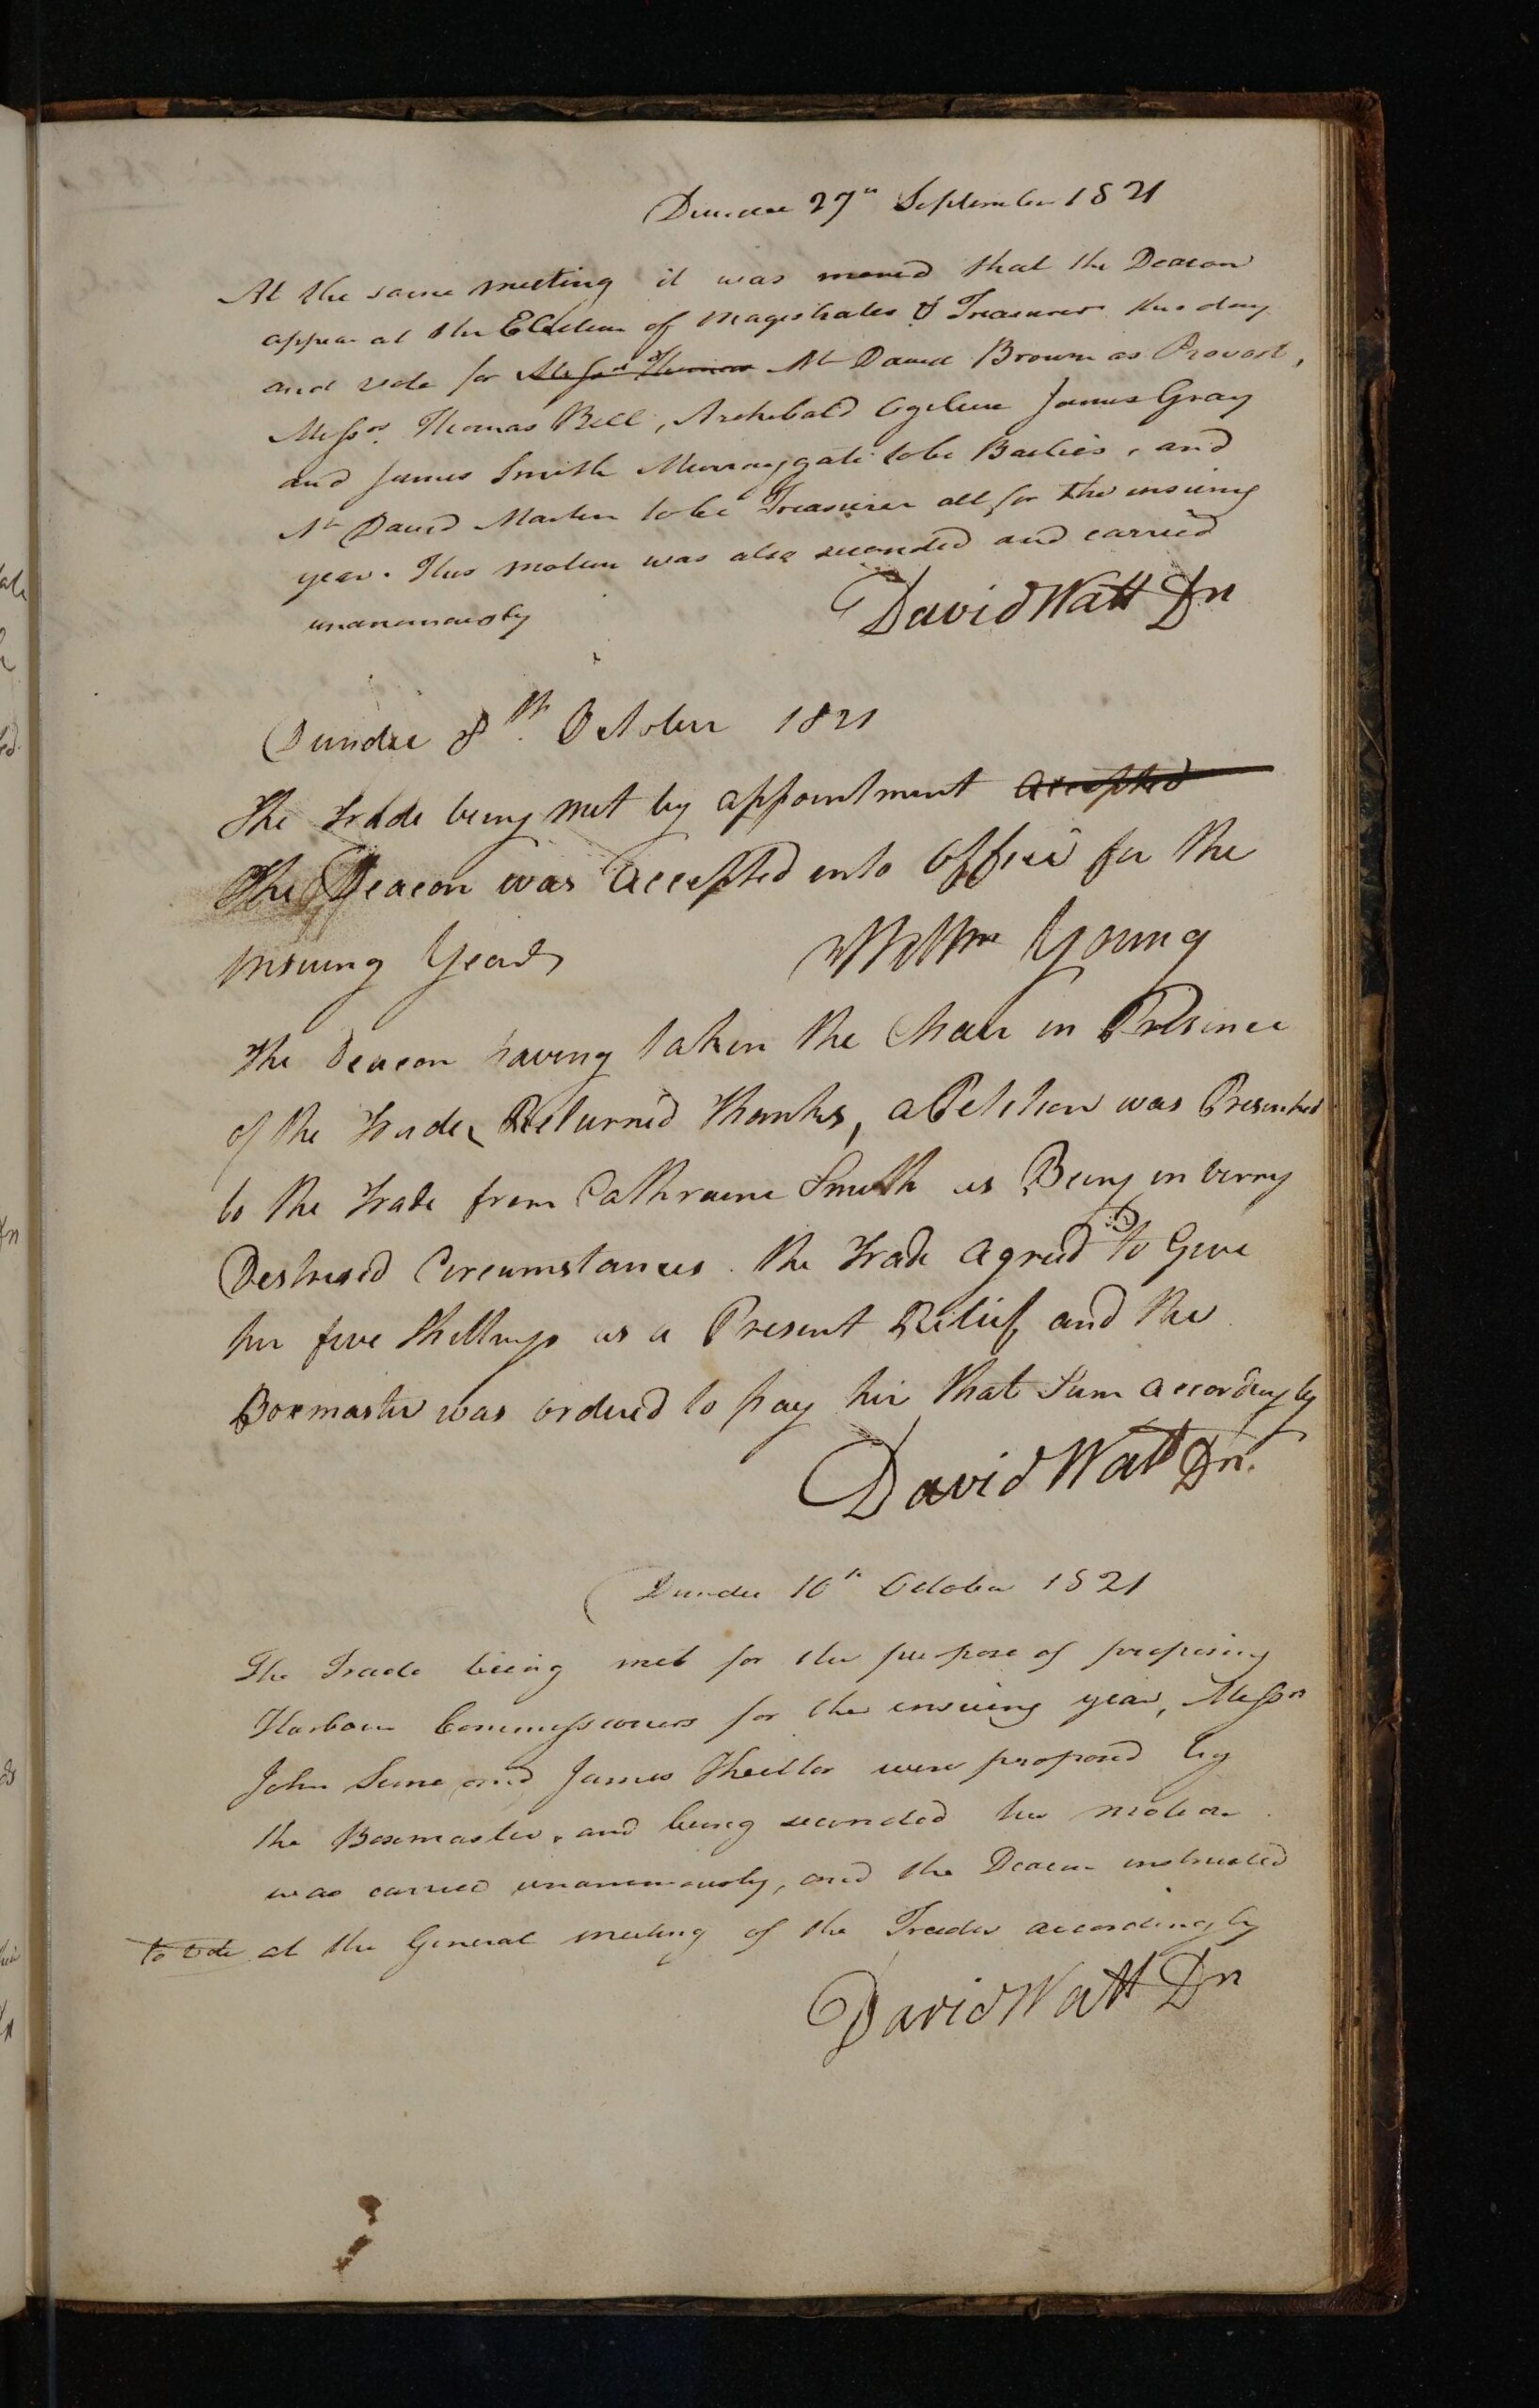 Dundee 27th September 1821
At the same meeting it was moved that the Deacon
appear at the Election of Magistrates & Treasurer this day
and vote for Messrs Thomas Mr David Brown as Provost,
Messrs. Thomas Bell, Archibald Ogilvie James Gray
and James Smith Murraygate to be Bailies, and
Mr David Martin to be Treasurer all for the ensuing
year. This motion was also seconded and carried
unanimously
David Watt Dn
Dundee 8th. October 1821
The Trade being met by appointment accepted
The Deacon was accepted into office for the
insuing Year
William Young
The Deacon having taken the Chair in Presince
of the Trade Returned thanks, a Petition was Presented
to the Trade from Cathraine Smith as Being in verry
Destresed Circumstances. the Trade agreed to Give
her five Shillings as a Present Relief and the
Boxmaster was ordered to pay hir that Sum accordingly
David Watt Dn.
Dundee 10th October 1821
The Trade being met for the purpose of proposing
Harbour Commissioners for the ensuing year, Messrs
John and James were proposed by
the Boxmaster, and being seconded his motion
was carried unanimously, and the Deacon instructed
to vote at the General meeting of the Trades accordingly
David Watt Dn